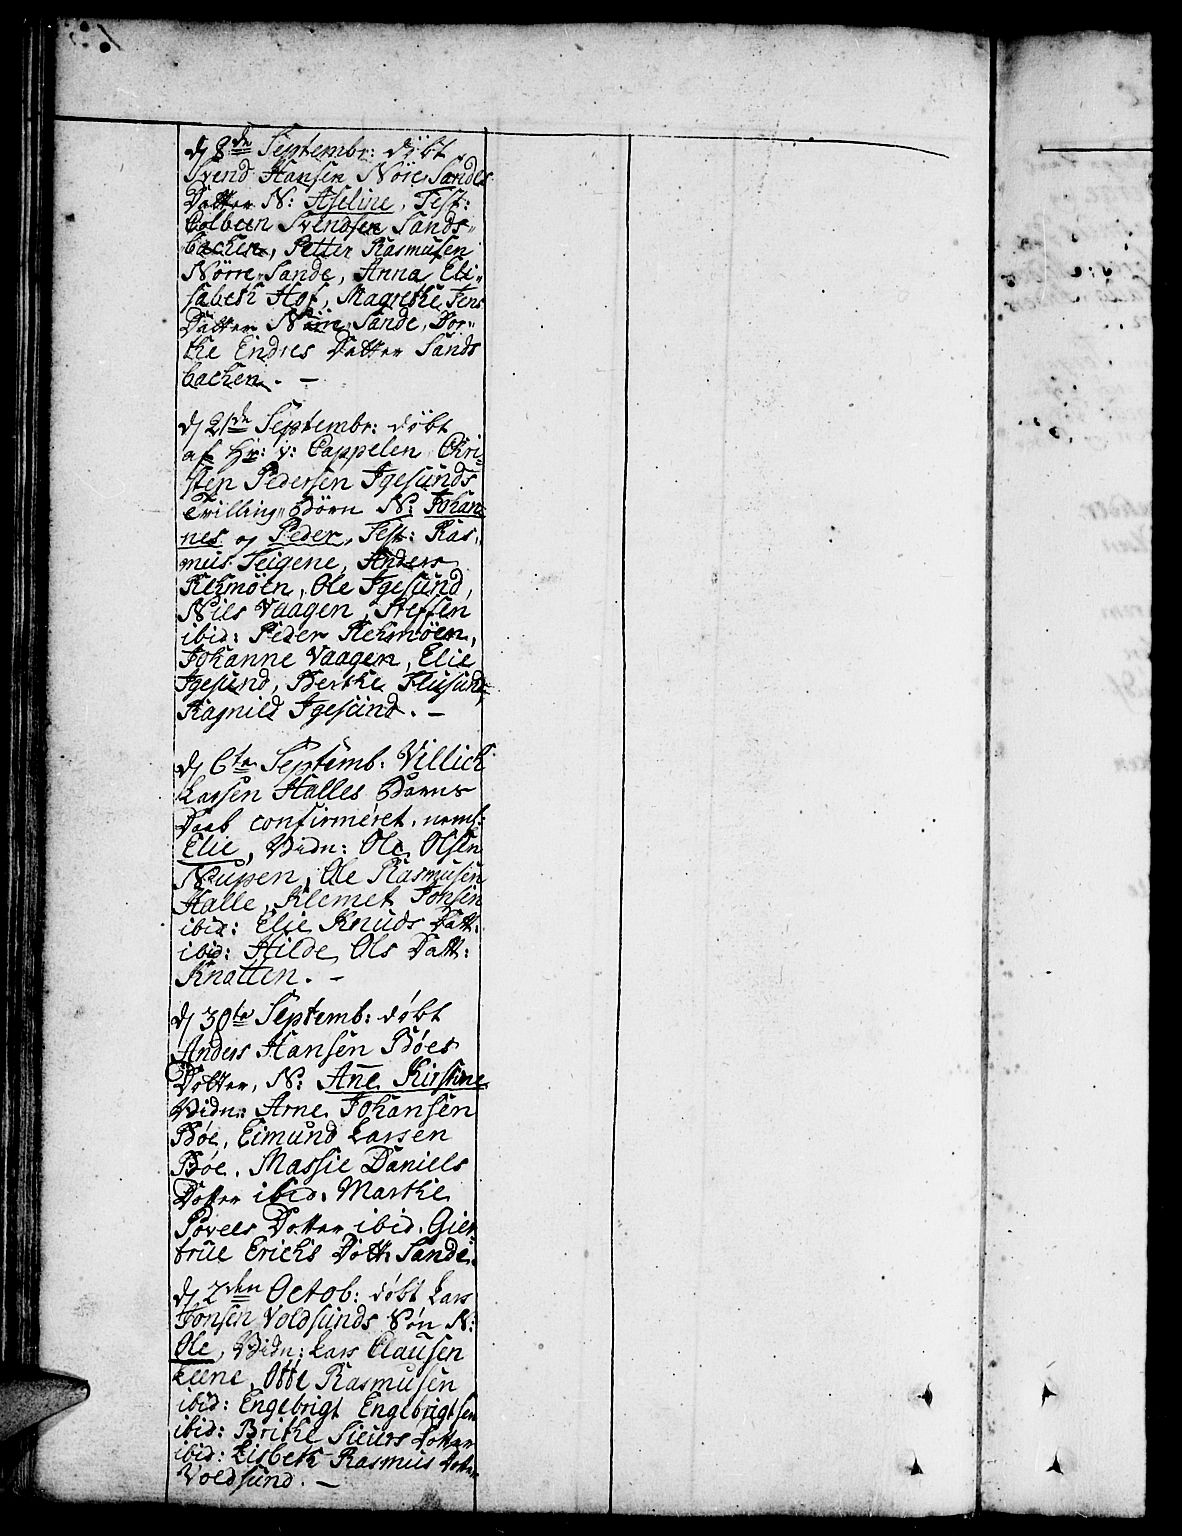 d 8de Septembr: döbt
Svend Hansen Nöre Sandes
Datter N: Aseline, Test:
Colbeen Svendsen Sands-
bachen, Petter Rasmusen
Nörre-Sande, Anna Eli-
sabeth Hof, Magrethe Jens
Datter Nörre Sande, Dor-
the Endres Datter Sands
bachen. -
d 21de Septembr: döbt
af Hr: v: Cappelen Chri-
sten Pedersen Igesunds
Tvilling-Börn N: Johan
nes og Peder, Test: Ras-
mus Teigene, Anders
Rekmöen, Ole Igesund,
Niels Vaagen, Steffen
ibid: Peder Rekmöen,
Johanne Vaagen, Elie
Igesund, Berthe Flusund,
Ragnild Igesund. -
d 6te Septemb: Villich
Larsen Halles Barns
Daab confirmeret, nemf:
Elie, Vidn: Ole Olsen
Nupen, Ole Rasmusen
Halle, Klemet Johsen
ibid: Elie Knuds Datt:
ibid: Hilde Ols Datt:
Knatten. -
d 30te Septemb: döbt
Anders Hansen Böes
Dotter, N: Ane Kirstine
Vidn: Arne Johansen
Böe, Eimund Larsen
Böe, Massie Daniels
Dotter ibid. Marthe
Povels Dotter ibid. Gier
true Erichs Dott. Sande.
d 2den Octob: döbt Lars
Jonsen Voldsunds Sön N:
Ole, Vidn: Lars Clausen
Leene, Otte Rasmusen
ibid: Engebrigt Engebrigtsen
ibid: Brithe Siuurs Dotter
ibid: Lisbeth Rasmus Dotter
Voldsund. -